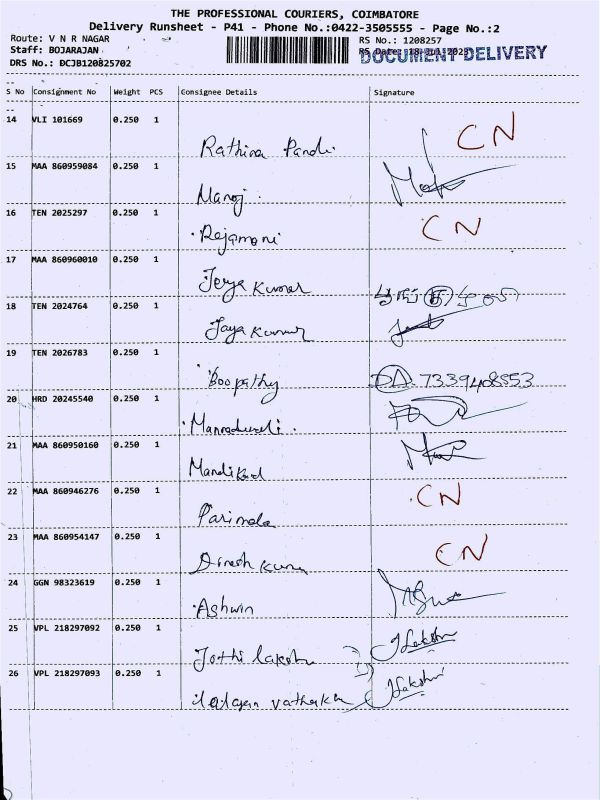 THE PROFESSIONAL COURIERS, COIMBATORE
Delivery Runsheet - P41 - Phone No.:0422-3505555 - Page No.:2
Route: V N R NAGAR RS No.: 1208257
Staff: BOJARAJAN RS Date: 18 Jul 2023 DOCUMENT DELIVERY
DRS No.: DCJB120825702
S No Consignment No Weight PCS Consignee Details Signature
14 VLI 101669 0.250 1 Rathina Pandi CN
15 MAA 860959084 0.250 1 Manoj
16 TEN 2025297 0.250 1 Rajamoni CN
17 MAA 860960010 0.250 1 Jeya Kumar
18 TEN 2024764 0.250 1 Jaya Kumar
19 TEN 2026783 0.250 1 Boopathy DA 7339408553
20 HRD 20245540 0.250 1
21 MAA 860950160 0.250 1
22 MAA 860946276 0.250 1 Parimala CN
23 MAA 860954147 0.250 1 Dinesh Kumar CN
24 GGN 98323619 0.250 1 Ashwin
25 VPL 218297092 0.250 1 Jothi Lakshmi JLakshmi
26 VPL 218297093 0.250 1 JLakshmi